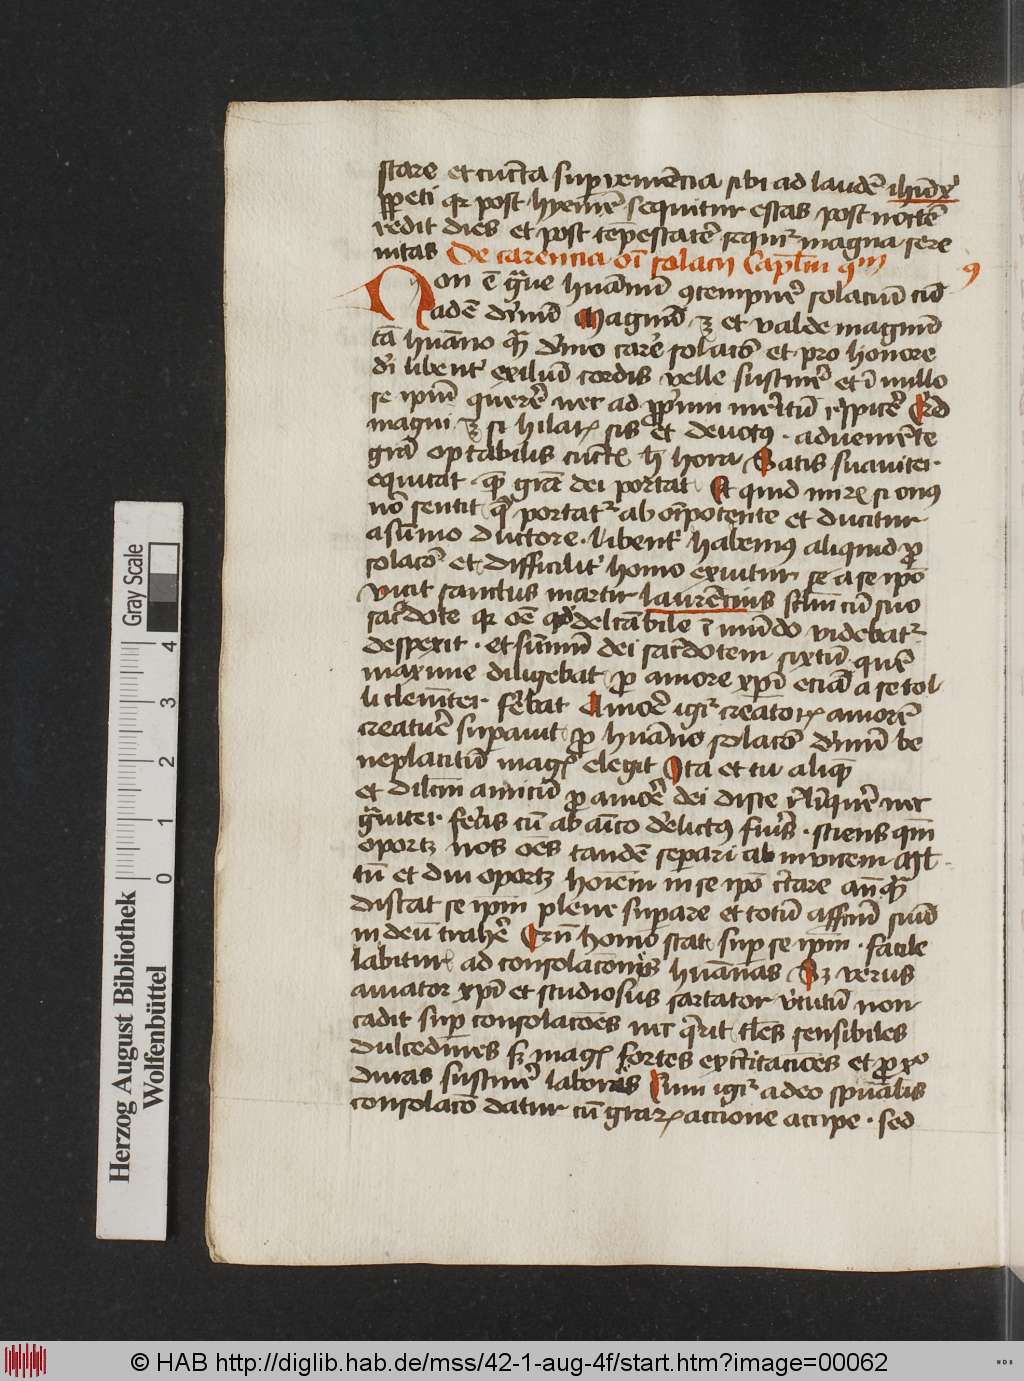 stare et cuncta supveniēcia sibi ad laudē ihū xi
ꝑpeti qr post hyemē sequitur estas post noctē
redit dies et post tēpestatē sequit magna sere
nitas De carencia oī solacii Caplm qm 9
Non ē gue huānū ꝯtempne solaciū cū
adē diuinū Magnū ꝫ et valde magnū
tā huāno qm diuino care solacō et pro honore
di libent exiliū cordis velle sustine et ī nullo
se ipm querere nec ad ppum meritū respice Qd
magni ꝫ si hilaris sis et deuotus · aduenīete
grā optabilis cuncte h hora Satis suauiter
equitat quē grā dei portat Et quid mire si onus
nō sentit qui portatr ab oīpotente et ducitur
a sūmo ductore · libent habemus aliquid ꝓ
solacō et difficilit homo exuitur se a se ipo
Vicit sanctus martir laurēcius sclm cū suo
sacdote qr oē qd delectabile ī mūdo videbatr
despexit · et sūmū dei sacdotem sixtū quē
maxime diligebat ꝓ amore xpi eciā a se tol
li clementer ferebat Amore igr creatoris amorē
creature supauit ꝓ huāno solacō diuinū be
neplacitū magis elegit Ita et tu aliqm
et dilcm amicū ꝓ amore dei disce relinquere nec
guiter feras cū ab amico derelictus fueris · sciens qm
oportꝫ nos oēs tandē separi ab inuicem Mul
tū et diu oportꝫ hoiem in se ipo certare anqm
discat se ipm plene supare et totū affcm suū
in deū trahere Qn homo stat sup se ipm · facile
labitur ad consolacones huānas Sꝫ verus
amator xpi et studiosus sectator virtutū non
cadit sup consolacoēs nec querit tales sensibiles
dulcedines sꝫ magis fortes exercitacioēs et ꝓ xo
duras sustinere labores Cum igr a deo spualis
consolaco datur cū graꝝ accione accipe · sed
Herzog August Bibliothek
Wolfenbüttel
Gray Scale
0 1 2 3 4
© HAB http://diglib.hab.de/mss/42-1-aug-4f/start.htm?image=00062